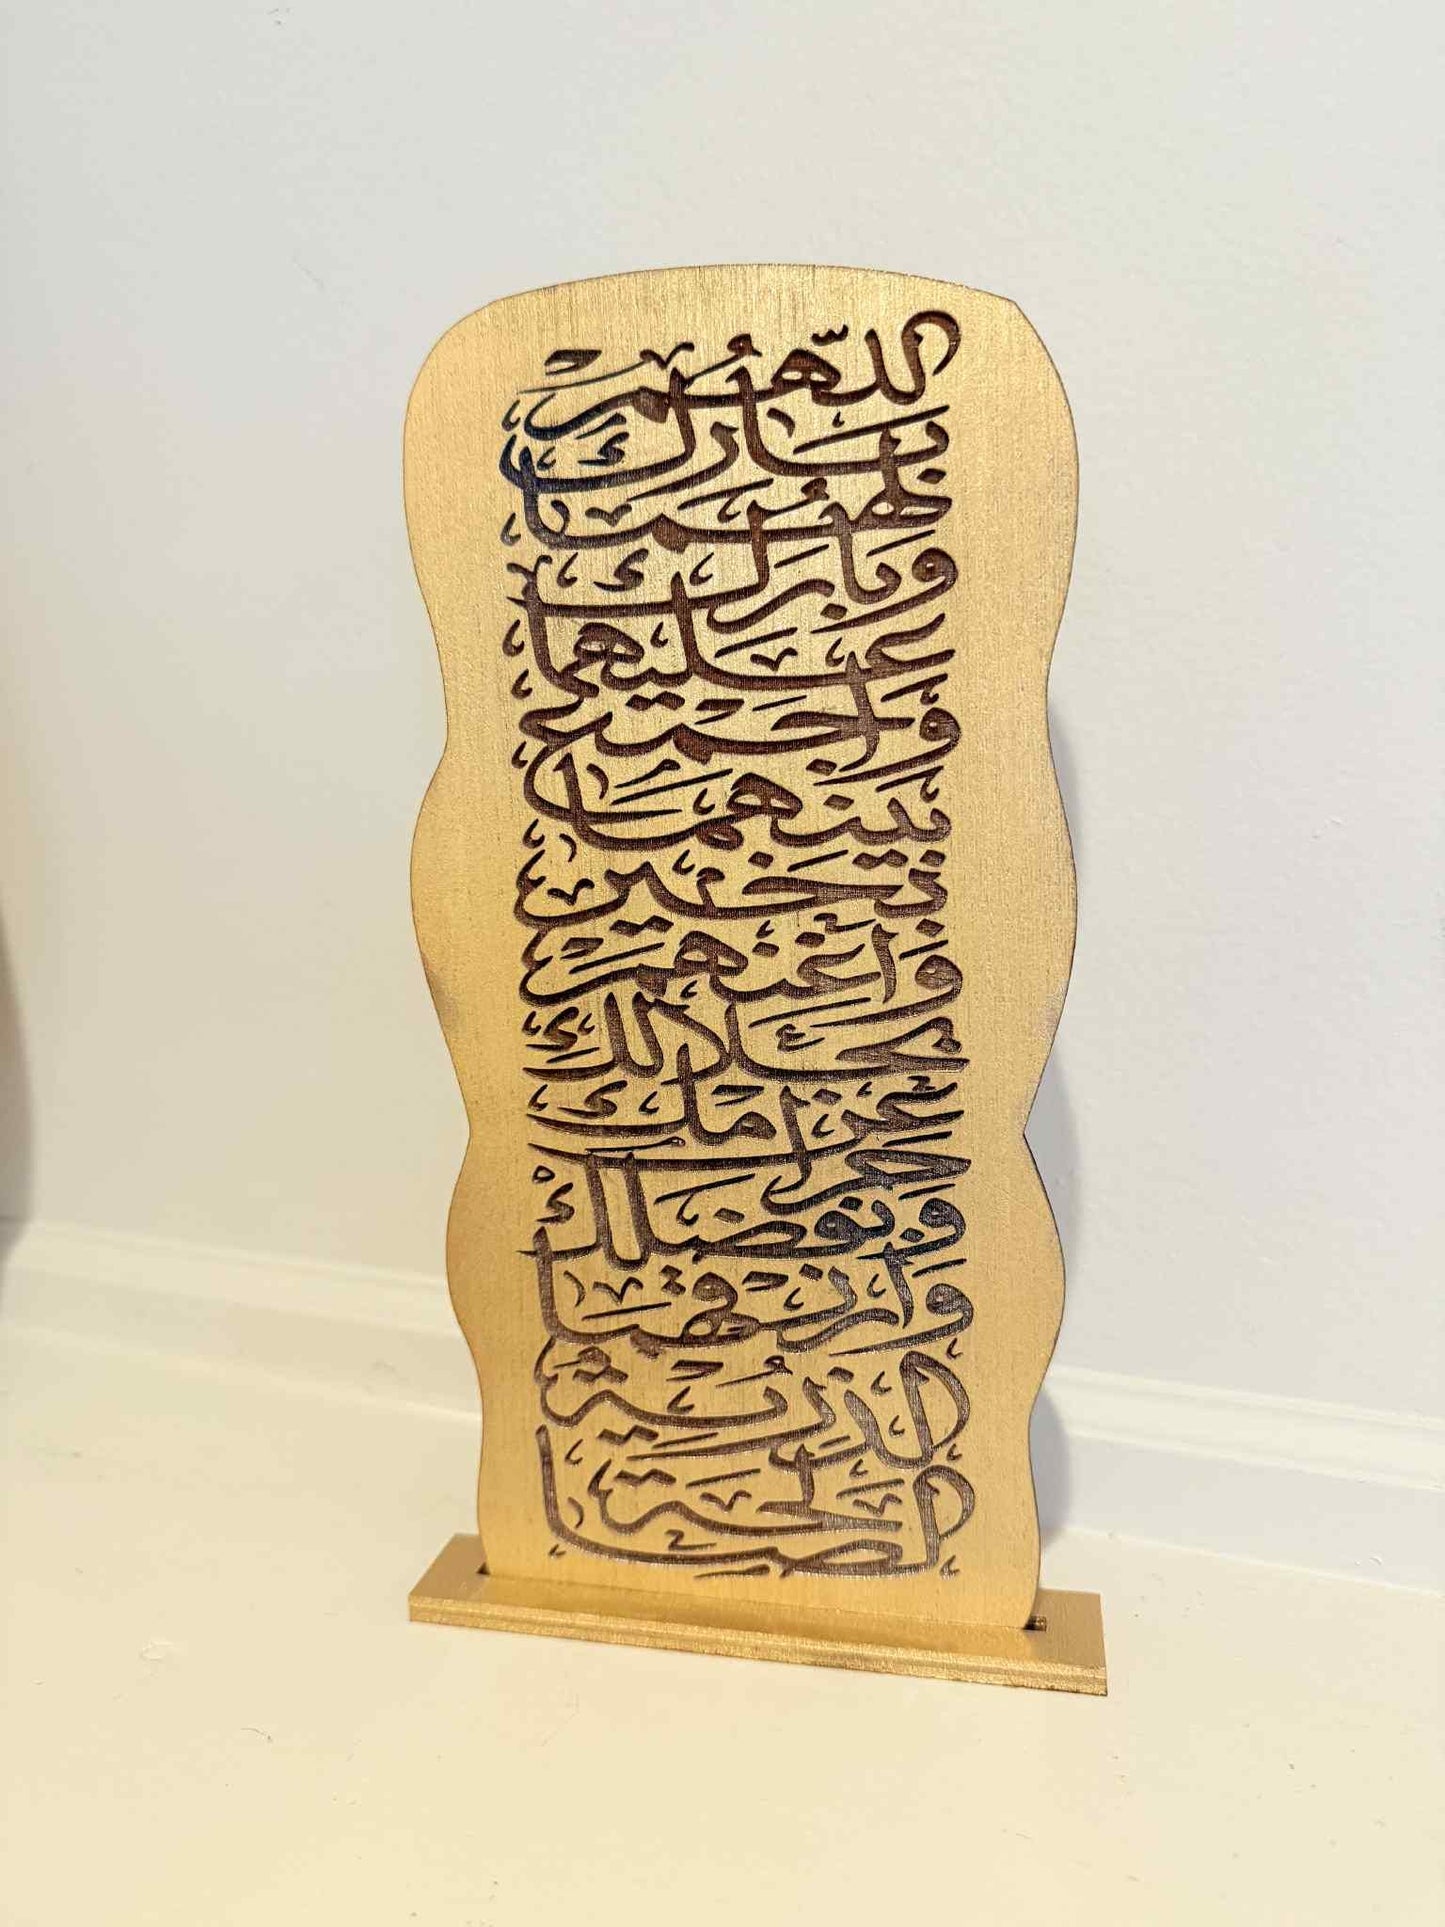 اللّهُمَّ
بَارِكْ
لَهُمَا
وَبَارِكْ
عَلَيْهِمَا
وَاجْمَعْ
بَيْنَهُمَا
بِخَيْرٍ
وَاغْنِهِمْ
بِحَلَالِكَ
عَنْ
حَرَامِكَ
وَارْزُقْهُمَا
الذُّرِّيَّةَ
الصَّالِحَةَ